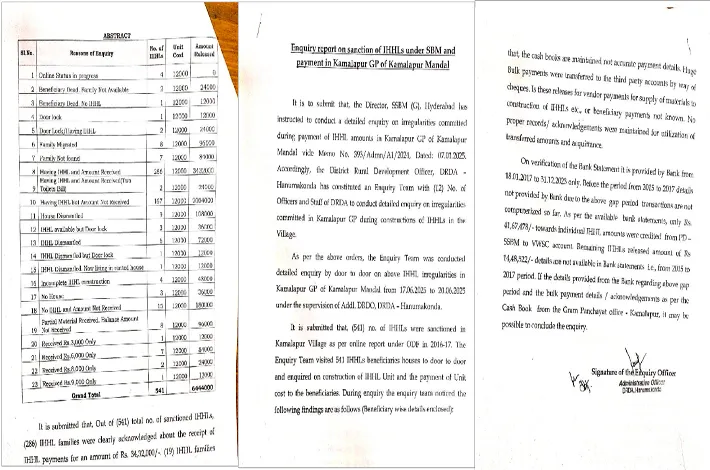 ABSTRACT
Sl.No. Reasons of Enquiry No. of IHHLs Unit Cost Amount Released
1 Online Status in progress 4 12000 0
2 Beneficiary Dead, Family Not Available 2 12000 24000
3 Beneficiary Dead, No IHHL 1 12000 12000
4 Door lock 1 12000 12000
5 Door Lock/Having IHHL 2 12000 24000
6 Family Migrated 8 12000 96000
7 Family Not found 7 12000 84000
8 Having IHHL and Amount Received 286 12000 3432000
9 Having IHHL and Amount Received/Two Toilets Bill 2 12000 24000
10 Having IHHL but Amount Not Received 167 12000 2004000
11 House Dismantled 9 12000 108000
12 IHHL available but Door lock 3 12000 36000
13 IHHL Dismantled 6 12000 72000
14 IHHL Dismantled but Door lock 1 12000 12000
15 IHHL Dismantled, Now living in rental house 1 12000 12000
16 Incomplete IHHL construction 4 12000 48000
17 No House 3 12000 36000
18 No IHHL and Amount Not Received 15 12000 180000
19 Partial Material Received, Balance Amount Not Received 8 12000 96000
20 Received Rs.3,000 Only 1 12000 12000
21 Received Rs.6,000 Only 7 12000 84000
22 Received Rs.8,000 Only 2 12000 24000
23 Received Rs.9,000 Only 1 12000 12000
Grand Total 541 6444000
It is submitted that, Out of (541) total no. of sanctioned IHHLs,
(286) IHHL families were clearly acknowledged about the receipt of
IHHL payments for an amount of Rs. 34,32,000/-. (19) IHHL families
Enquiry report on sanction of IHHLs under SBM and
payment in Kamalapur GP of Kamalapur Mandal
It is to submit that, the Director, SSBM (G), Hyderabad has
instructed to conduct a detailed enquiry on irregularities committed
during payment of IHHL amounts in Kamalapur GP of Kamalapur
Mandal vide Memo No. 395/Admn/A1/2024, Dated: 07.01.2025.
Accordingly, the District Rural Development Officer, DRDA –
Hanumakonda has constituted an Enquiry Team with (12) No. of
Officers and Staff of DRDA to conduct detailed enquiry on irregularities
committed in Kamalapur GP during constructions of IHHLs in the
Village.
As per the above orders, the Enquiry Team was conducted
detailed enquiry by door to door on above IHHL irregularities in
Kamalapur GP of Kamalapur Mandal from 17.06.2025 to 20.06.2025
under the supervision of Addl. DRDO, DRDA – Hanumakonda.
It is submitted that, (541) no. of IHHLs were sanctioned in
Kamalapur Village as per online report under ODF in 2016-17. The
Enquiry Team visited 541 IHHLs beneficiaries houses to door to door
and enquired on construction of IHHL Unit and the payment of Unit
cost to the beneficiaries. During enquiry the enquiry team noticed the
following findings are as follows (Beneficiary wise details enclosed):
that, the cash books are maintained not accurate payment details. Huge
Bulk payments were transferred to the third party accounts by way of
cheques. Is these releases for vendor payments for supply of materials to
construction of IHHLs etc., or beneficiary payments not known. No
proper records/ acknowledgements were maintained for utilization of
transferred amounts and acquittance.
On verification of the Bank Statement it is provided by Bank from
18.01.2017 to 31.12.2025 only. Before the period from 2015 to 2017 details
not provided by Bank due to the above gap period transactions are not
computerized so far. As per the available bank statements, only Rs.
41,67,478/- towards individual IHHL amounts were credited from PD –
SSBM to VWSC account. Remaining IHHLs released amount of Rs
14,48,522/- details are not available in Bank statements i.e., from 2015 to
2017 period. If the details provided from the Bank regarding above gap
period and the bulk payment details / acknowledgements as per the
Cash Book from the Gram Panchayat office - Kamalapur, it may be
possible to conclude the enquiry.
Signature of the Enquiry Officer
Administrative Officer
DRDA, Hanumakonda